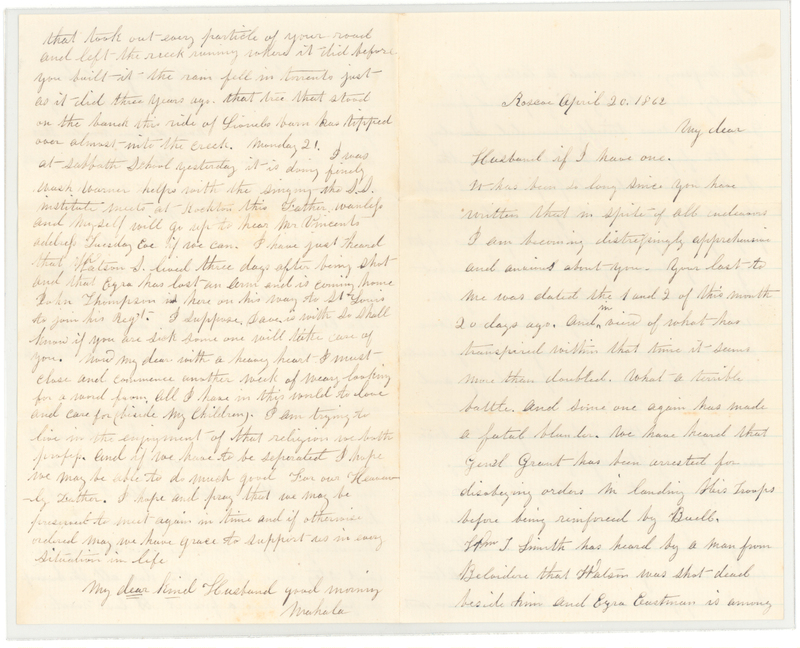 Roscoe April 20. 1862
My dear
Husband if I have one.
It has been so long since you have
written that in spite of all endeavors
I am becoming distressingly apprehensive
and anxious about you. Your last to
me was dated the 1 and 2 of this month
20 days ago. And in view of what has
transpired within that time it seems
more than doubled. What a terrible
battle. And some one again has made
a fatal blunder. We have heard that
Genl Grant has been arrested for
disobeying orders in landing his Troops
before being reinforced by Buell.
Wm T Smith has heard by a man from
Belvidere that Watson was shot dead
beside him and Ezra Eastman is among
that took out every particle of your road
and left the creek running where it did before
you built it the rain fell in torrents just
as it did three years ago. that tree that stood
on the bank this side of Lionels barn has tipped
over almost into the creek. Monday 21. I was
at Sabbath School yesterday it is doing finely
Wash Warner helps with the singing the S.S.
institute meets at Rockton this Father
and myself will go up to hear Mr Vincents
address Tuesday Eve if we can. I have just heard
that Watson S. lived three days after being shot
and that Ezra has lost an arm and is coming home
John Thompson is here on his way to St Louis
to join his Regt. I suppose is with so shall
know if you are sick some one will take care of
you. Now my dear with a heavy heart I must
close and commence another week of weary looking
for a word from all I have in this world to love
and care for (beside my children). I am trying to
live in the enjoyment of that religion we both
profess. And if we have to be seperated I hope
we may be able to do much good for our Heaven
-ly Father. I hope and pray that we may be
preserved to meet again in time and if otherwise
ordered may we have grace to support us in every
situation in life
My dear kind Husband good morning
Mahala